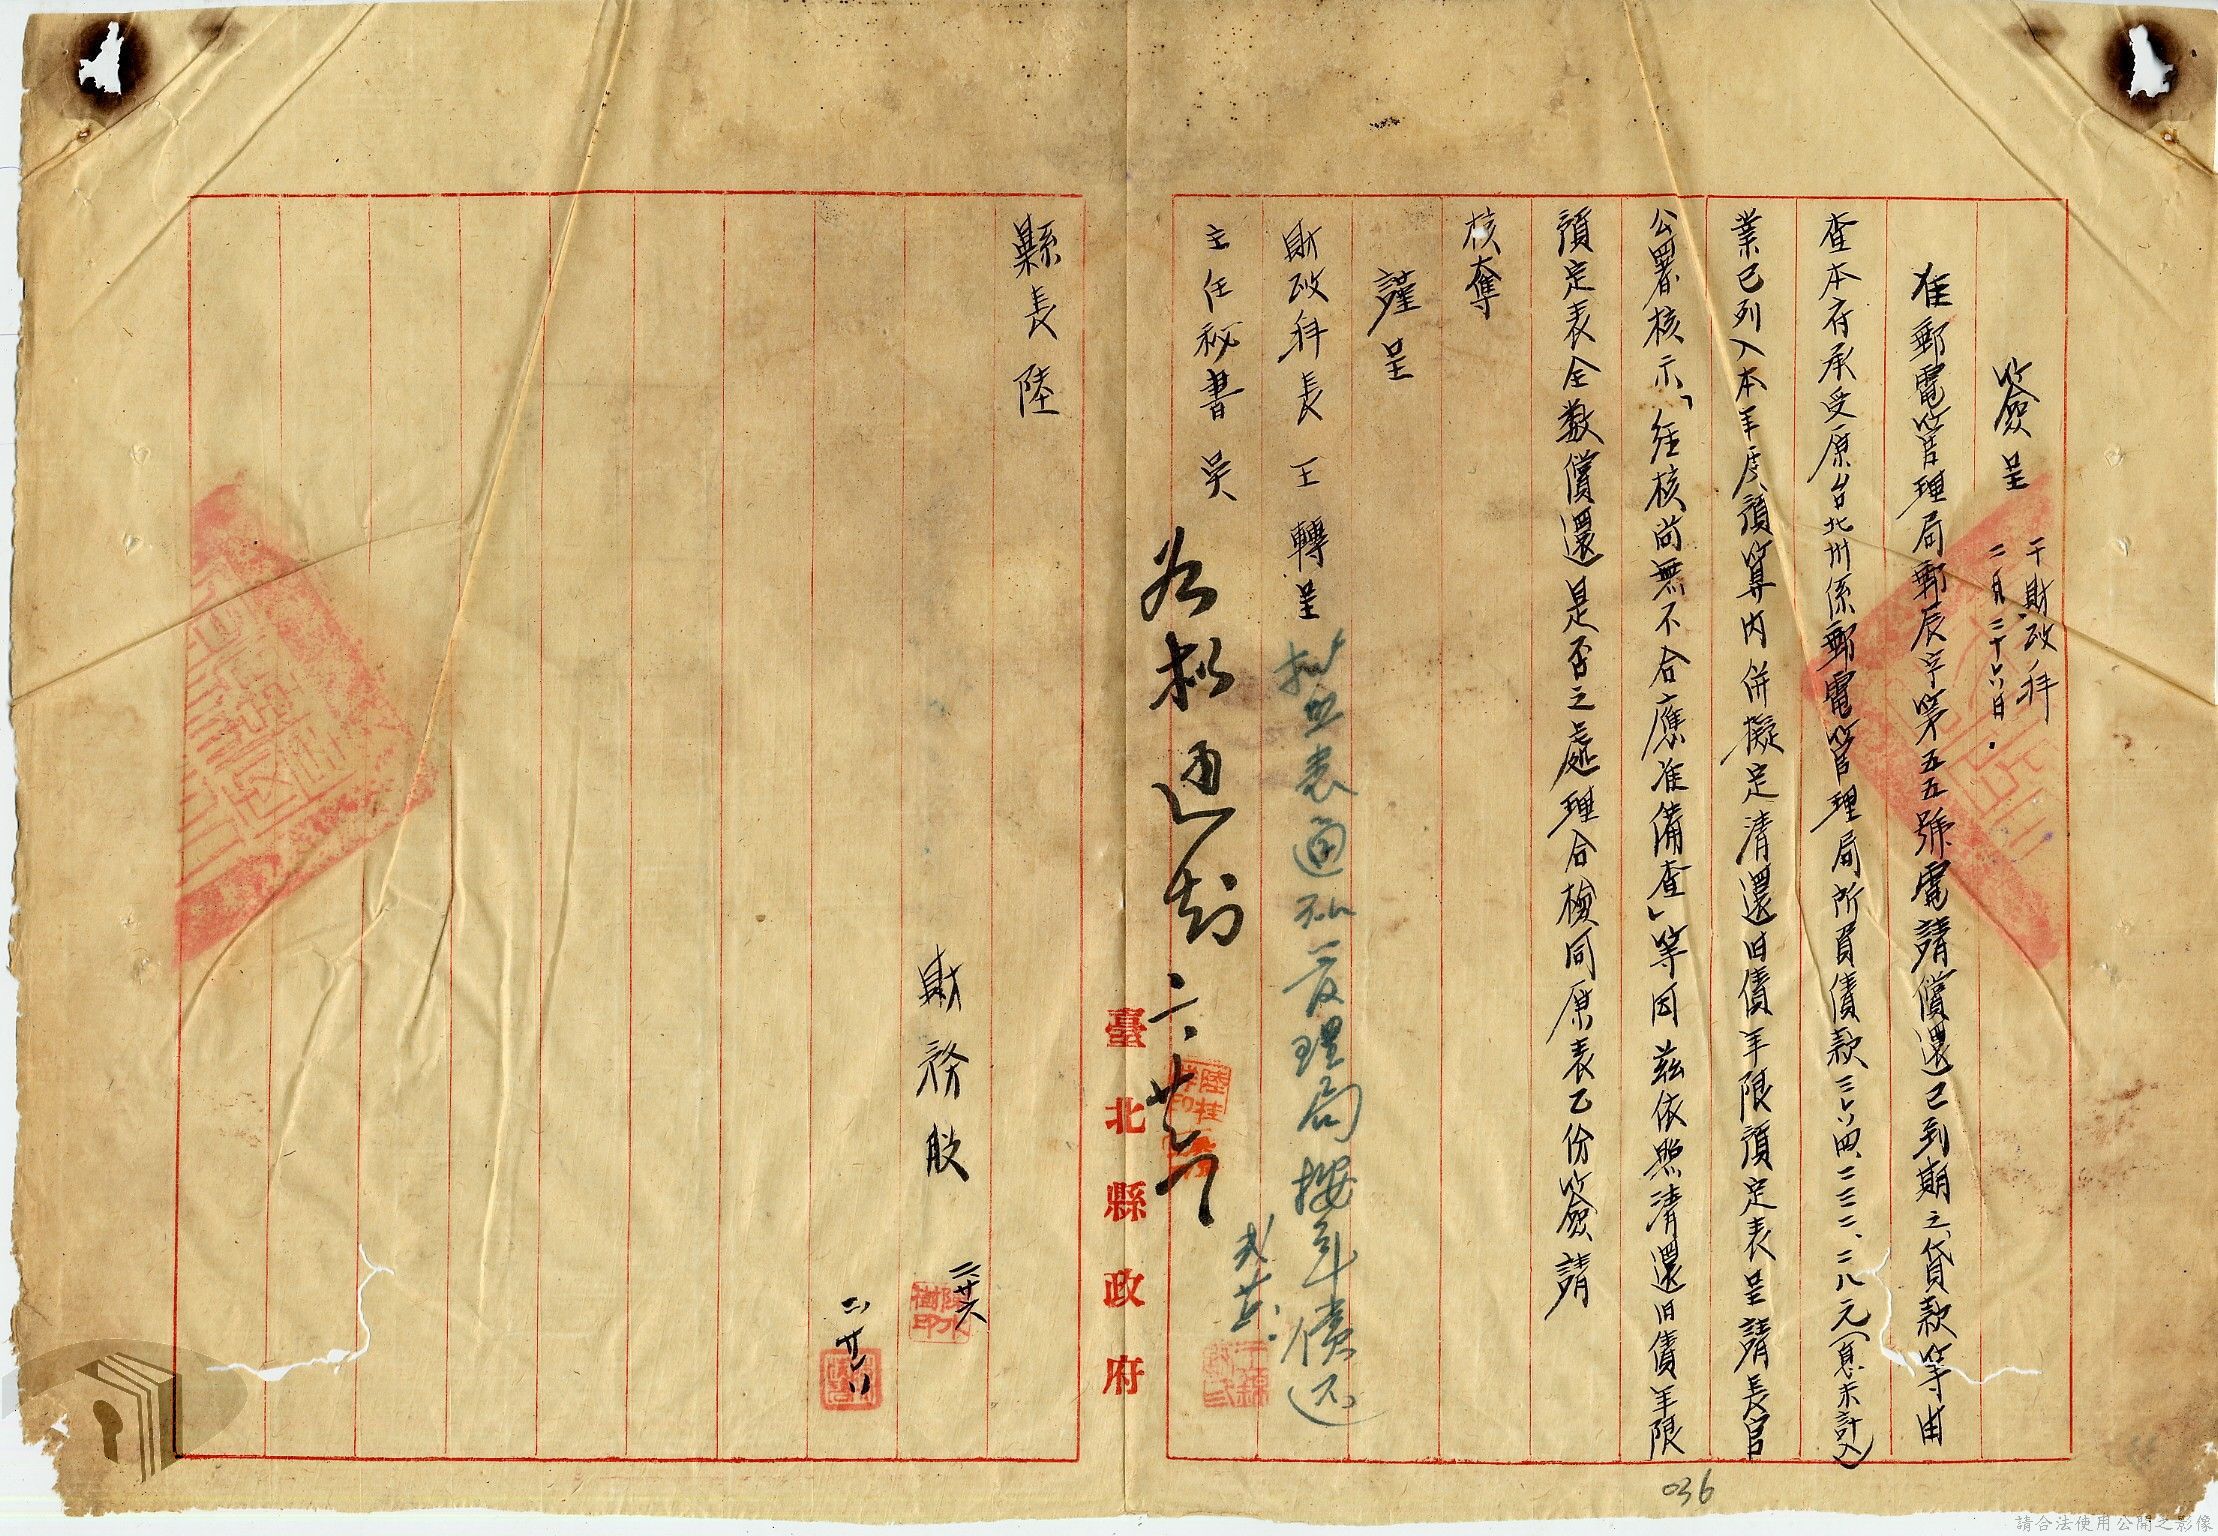 簽呈
于財政科
二月二十六日．
准郵電管理局郵辰字第五五號電請償還已到期之貸款等由
查本府承受原台北州係郵電管理局所負債款三六四、二三二、二八元(息未計入)
業已列入本年度預算內併擬定清還旧債年限預定表呈請長官
公署核示「經核尚無不合應准備查」等因茲依照清還旧債年限
預定表全数償還是否之處理合檢同原表乙份簽請
核奪
謹呈
財政科長王轉呈
主任秘書吳
擬照表通知管理局按年償還
臺北縣政府
縣長陸
財務股
二、廿六
請合法使用公開之影像
036